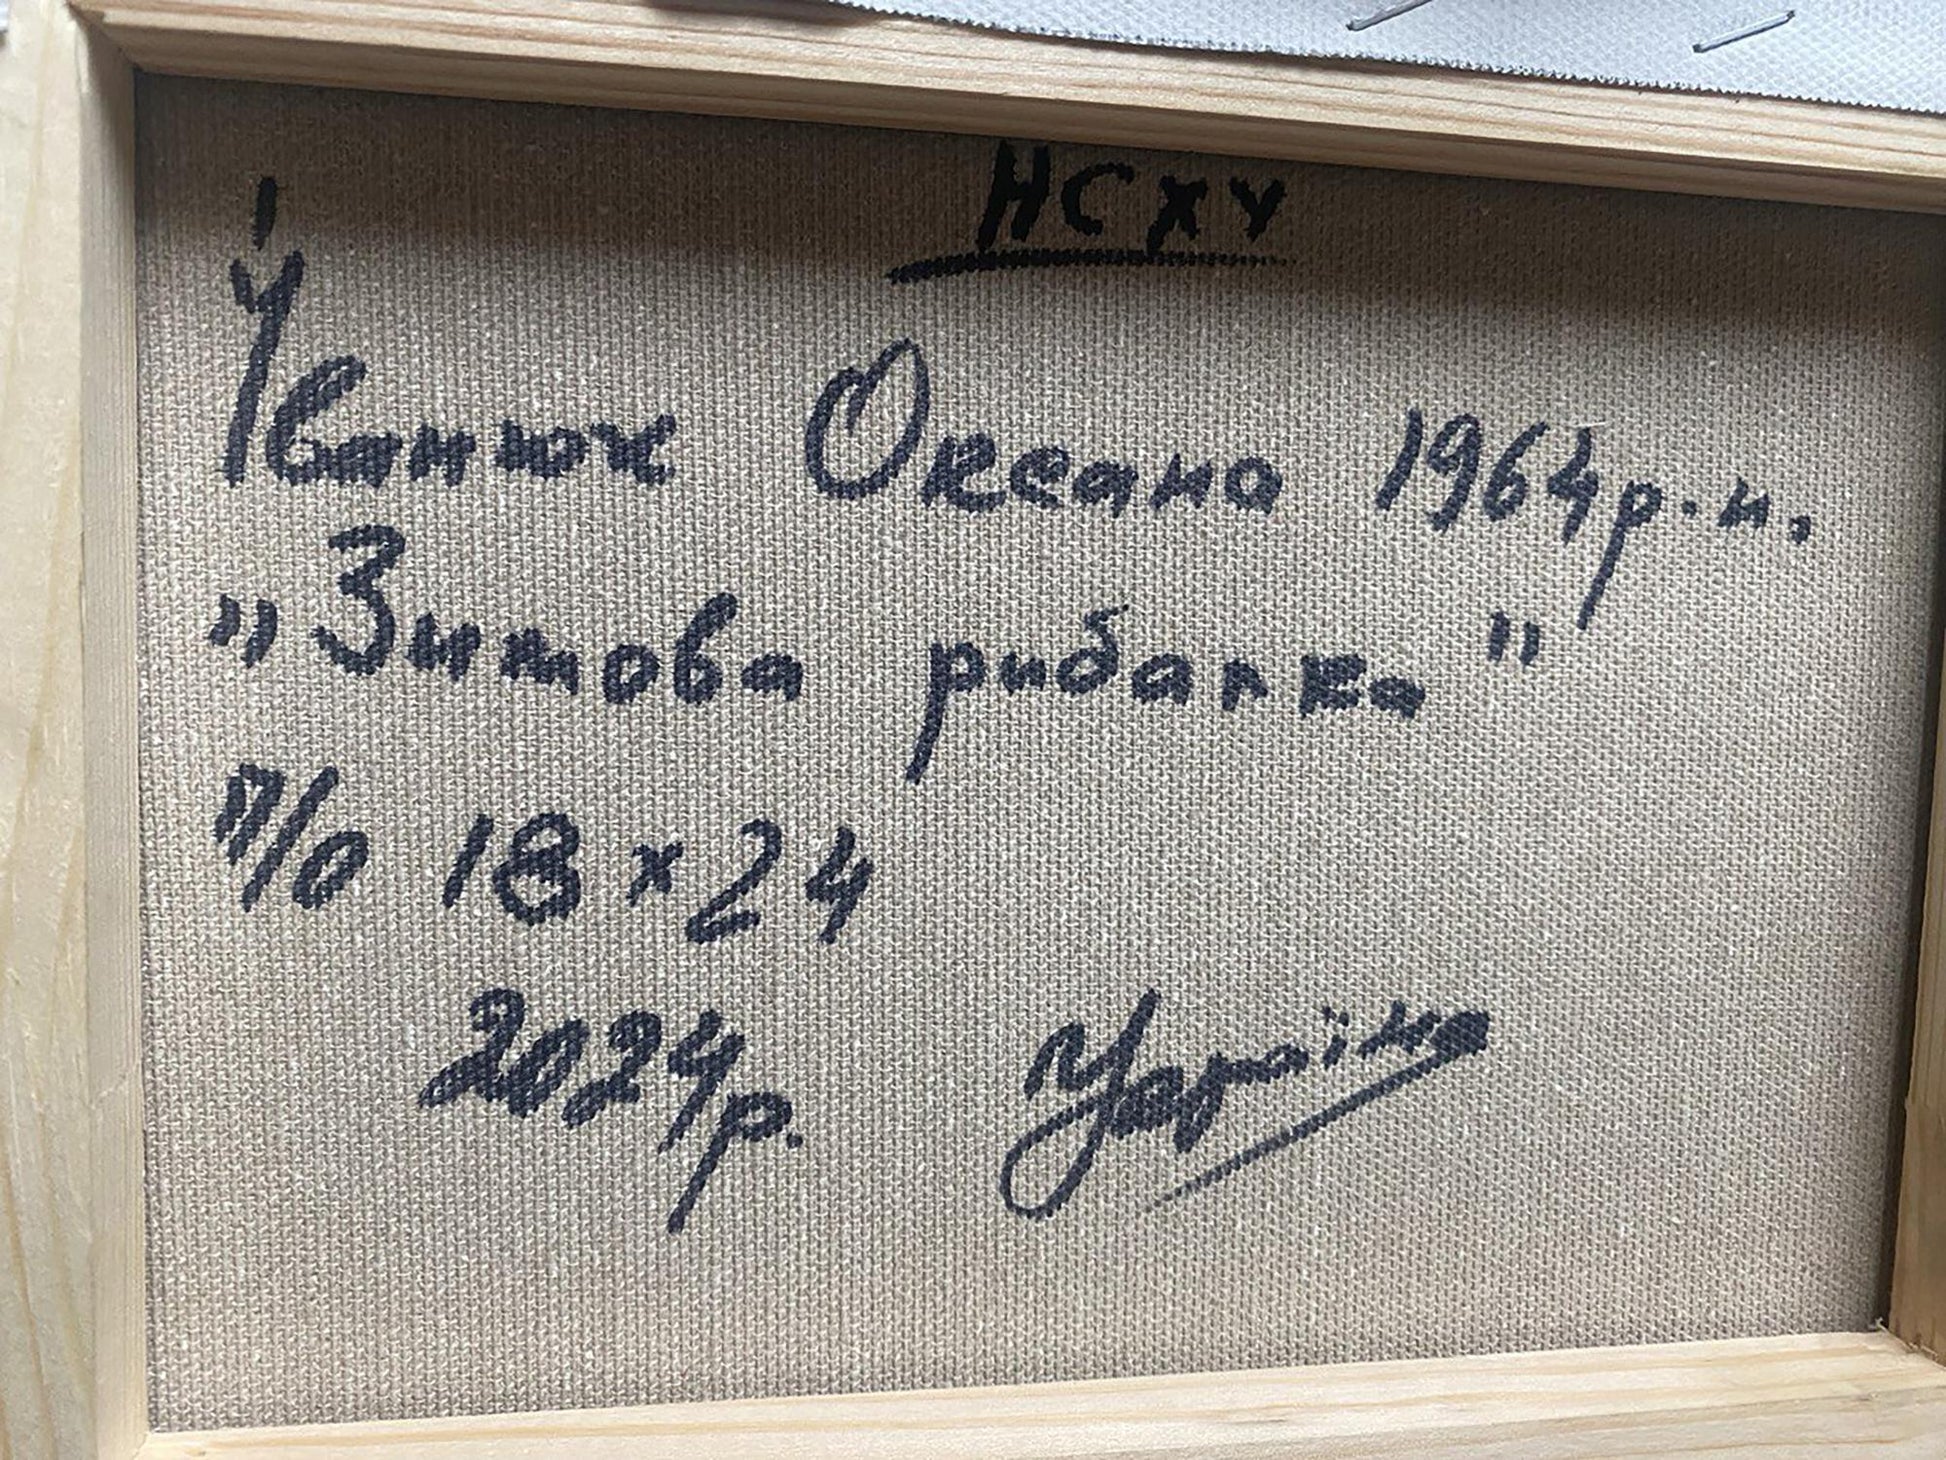 НСХУ
Іванюк Оксана 1964р.н.
„Зимова рибалка"
п/о 18х24
2024р. Україна